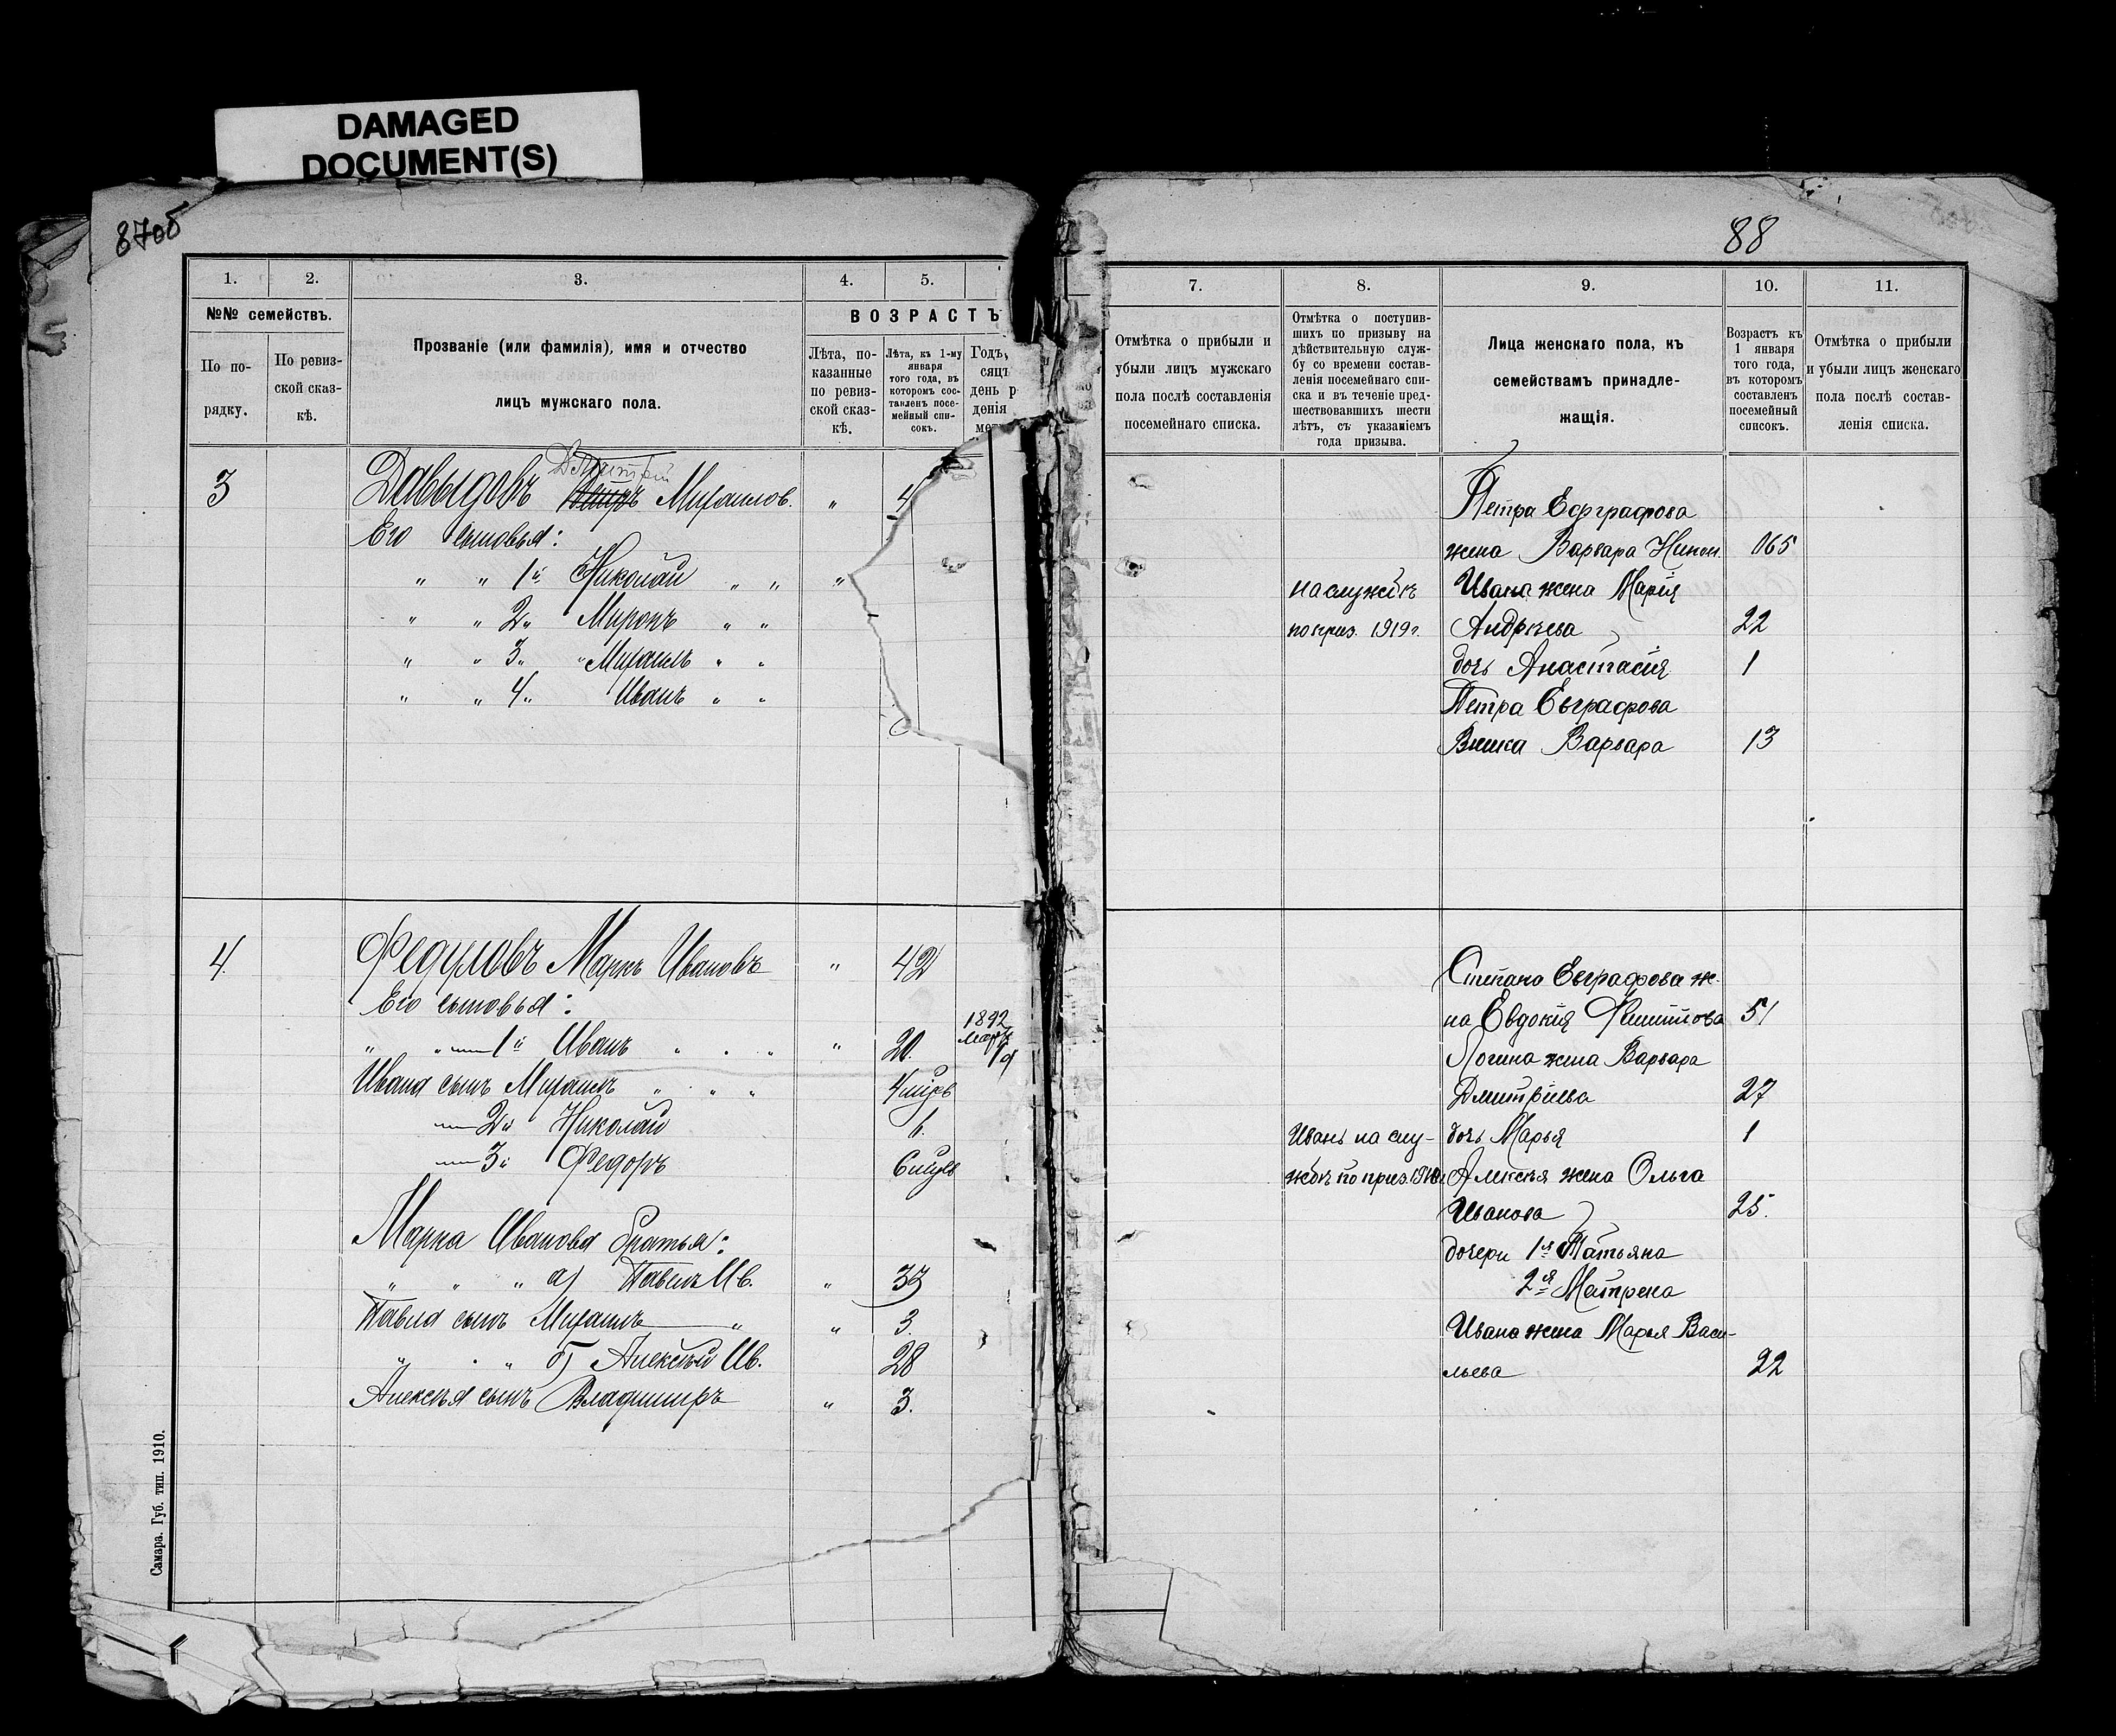 DAMAGED
DOCUMENT(S)
87об
88
1.
2.
3.
4.
5.
№№ семействъ.
По по-
рядку.
По ревиз-
ской сказ-
кѣ.
Прозваніе (или фамилія), имя и отчество
лицъ мужскаго пола.
ВОЗРАСТЪ
Лѣта, по-
казанные
по ревиз-
ской сказ-
кѣ.
Лѣта, къ 1-му
января
того года, въ
которомъ сос-
тавленъ посе-
мейный спи-
сокъ.
Годъ,
сяцъ
день р
денія
мет
3
Давыдовъ Дмитрій Михаилов. „ 4
Его сыновья:
„ „ 1й Николай „ „ „
„ „ 2„ Миронъ „ „
„ „ 3„ Михаилъ „ „
„ „ 4„ Иванъ „ „
4.
Федуловъ Маркъ Ивановъ „ 42
Его сыновья:
„ „ 1й Иванъ „ „ „ „ 20. 1892 март
Ивана сынъ Михаилъ „ „ „ 4 мцев
2й Николай 6.
3й Федоръ 6 мцев
Марка Иванова братья:
„ „ „ а) Павелъ Ив. „ 33
Павла сынъ Михаилъ „ „ 3.
„ „ „ б) Алексѣй Ив. 28
Алексѣя сынъ Владимиръ „ 3.
Самара. Губ. тип. 1910.
7.
8.
9.
10.
11.
Отмѣтка о прибыли и
убыли лицъ мужскаго
пола послѣ составленія
посемейнаго списка.
Отмѣтка о поступив-
шихъ по призыву на
дѣйствительную служ-
бу со времени состав-
ленія посемейнаго спи-
ска и въ теченіе пред-
шествовавшихъ шести
лѣтъ, съ указаніемъ
года призыва.
Лица женскаго пола, къ
семействамъ принадле-
жащія.
Возрастъ къ
1 января
того года,
въ которомъ
составленъ
посемейный
списокъ.
Отмѣтка о прибыли
и убыли лицъ женскаго
пола послѣ состав-
ленія списка.
Петра Евграфова
жена Варвара 065
на службѣ Ивана жена Марія
по приз. 1919г. Андрѣева 22
дочь Анастасія 1
Петра Евграфова
Внука Варвара 13
Степана Евграфова ж.
на Евдокія Филиппова 51
Логина жена Варвара
Дмитріева 27
Иванъ на слу- дочь Марья 1
жбѣ по приз. Алексѣя жена Ольга
Иванова 25.
дочери 1я Татьяна
2я Матрена
Ивана жена Марья Васи-
льева 22